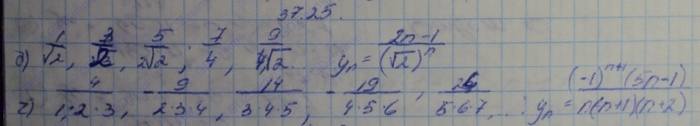 37.25.
б) 1/√2, 3/2, 5/2√2, 7/4, 9/4√2. yₙ = (2n-1)/(√2)ⁿ
г) 4/1·2·3, -9/2·3·4, 14/3·4·5, -19/4·5·6, 24/5·6·7, ...; yₙ = (-1)ⁿ⁺¹(5n-1)/n(n+1)(n+2)